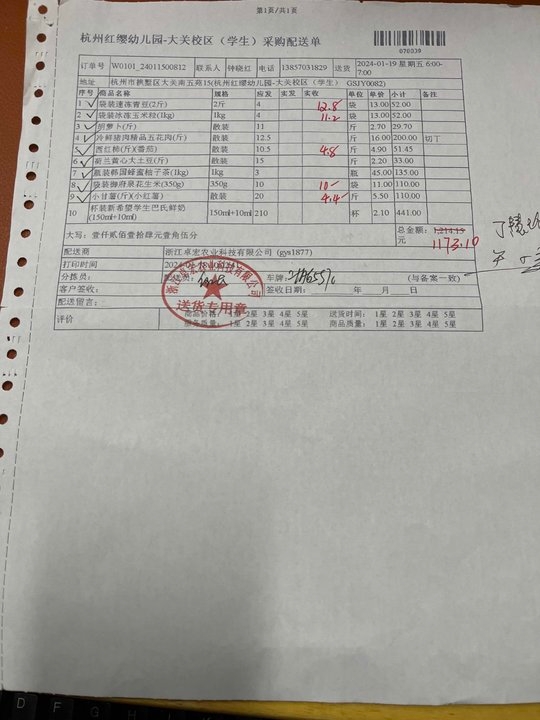 第1页/共1页
杭州红缨幼儿园-大关校区（学生）采购配送单
070039
订单号 W0101_24011500812 联系人 钟晓红 电话 13857031829 送货 2024-01-19 星期五 6:00-7:00
地址 杭州市拱墅区大关南五苑15(杭州红缨幼儿园-大关校区（学生） GSJY0082)
序号 商品名称 规格 应发 实发 实收 单位 单价 小计 备注
1 袋装速冻青豆(2斤) 2斤 4 12.8 袋 13.00 52.00
2 袋装冰冻玉米粒(1kg) 1kg 4 11.2 袋 13.00 52.00
3 胡萝卜(斤) 散装 11 斤 2.70 29.70
4 冷鲜猪肉精品五花肉(斤) 散装 12.5 斤 16.00 200.00 切丁
5 西红柿(斤)(番茄) 散装 10.5 4.8 斤 4.90 51.45
6 荷兰黄心大土豆(斤) 散装 15 斤 2.20 33.00
7 瓶装韩国蜂蜜柚子茶(1kg) 1kg 3 瓶 45.00 135.00
8 袋装御府泉花生米(350g) 350g 10 10 袋 11.00 110.00
9 小甘薯(斤)(小红薯) 散装 20 4.4 斤 5.50 110.00
10 杯装新希望学生巴氏鲜奶(150ml+10ml) 150ml+10ml 210 杯 2.10 441.00
大写：壹仟贰佰壹拾肆元壹角伍分 总金额：1,214.15元
1173.10
配送商 浙江卓宏农业科技有限公司 (gys1877)
打印时间
分拣员： 配送员： 车牌： (与备案一致)
客户签收： 签收日期： 年 月 日
配送留言：
浙江卓宏农业科技有限公司
送货专用章
评价 商品价格： 1星 2星 3星 4星 5星 送货时间： 1星 2星 3星 4星 5星
服务质量： 1星 2星 3星 4星 5星 商品质量： 1星 2星 3星 4星 5星
D F G H